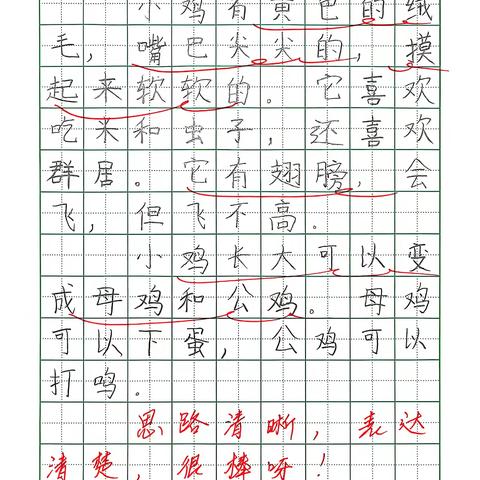 小鸡有黄色的绒
毛，嘴巴尖尖的，摸
起来软软的。它喜欢
吃米和虫子，还喜欢
群居。它有翅膀，会
飞，但飞不高。
小鸡长大可以变
成母鸡和公鸡。母鸡
可以下蛋，公鸡可以
打鸣。
思路清晰，表达
清楚，很棒呀！